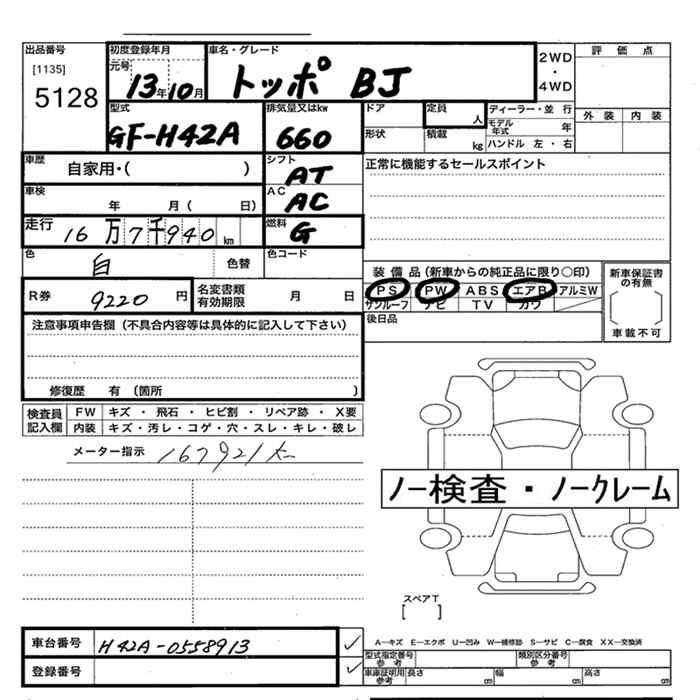 出品番号 初度登録年月 車名・グレード 2WD・4WD 評価点
[1135] 元号
5128 13年10月 トッポ BJ
外装 内装
型式 排気量又はkw ドア 定員 人 ディーラー・並行
GF-H42A 660 形状 積載 kg モデル年式 年
ハンドル 左・右
車歴 自家用・( ) シフト AT 正常に機能するセールスポイント
車検 年 月( 日) AC AC
走行 16万7千940km 燃料 G
色 白 色替 色コード
装備品(新車からの純正品に限り○印) 新車保証書の有無
R券 9220円 名変書類有効期限 月 日 PS PW ABS エアB アルミW
サンルーフ ナビ TV カワ
[ ]
車載不可
注意事項申告欄(不具合内容等は具体的に記入して下さい) 後日品
修復歴 有 (箇所 )
検査員記入欄 FW キズ・飛石・ヒビ割・リペア跡・X要
内装 キズ・汚レ・コゲ・穴・スレ・キレ・破レ
メーター指示 167921
ノー検査・ノークレーム
スペアT
[ ]
車台番号 H42A-0558913 ✓ A―キズ E―エクボ U―凹み W―補修跡 S―サビ C―腐食 XX―交換済
型式指定番号 参考 類別区分番号 参考
登録番号 ✓ 車庫証明用 参考 長さ cm 幅 cm 高さ cm